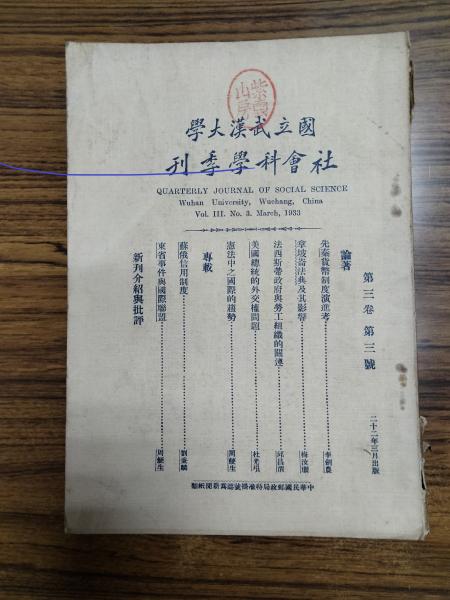 國立武漢大學
社會科學季刊
QUARTERLY JOURNAL OF SOCIAL SCIENCE
Wuhan University, Wuchang, China
Vol. III. No. 3. March, 1933
第三卷 第三號
二十二年三月出版
論著
先秦貨幣制度演進考 李劍農
拿坡崙法典及其影響 梅汝璈
法西斯蒂政府與勞工組織的關連
美國總統的外交權問題 杜光塤
憲法中之國際的趨勢 周鯁生
專載
蘇俄信用制度 劉秉麟
東省事件與國際聯盟 周鯁生
新刊介紹與批評
中華民國郵政局特准掛號認為新聞紙類